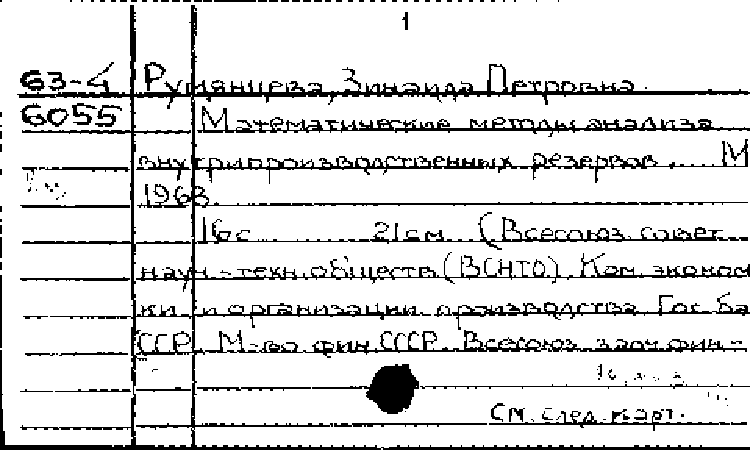 1
63-4 Румянцева, Зинаида Петровна
6055 Математические методы анализа
внутрипроизводственных резервов. М
1963.
16 с 21 см (Всесоюз. совет
науч.-техн. обществ (ВСНТО). Ком. эконом
ки и организации производства. Гос. ба
СССР. М-во фин. СССР. Всесоюз. заоч. фин-
См. след. карт.